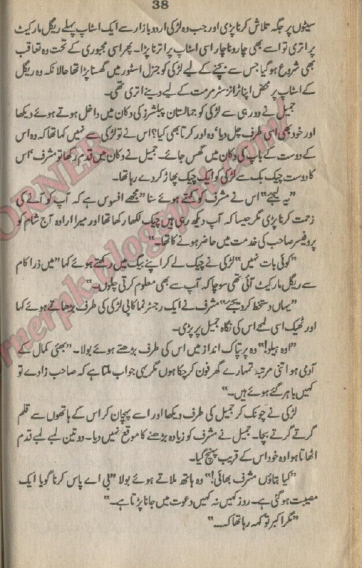 38
سیٹوں پر جگہ تلاش کرنا پڑی اور جب وہ لڑکی اردو بازار سے ایک اسٹاپ پہلے ریگل مارکیٹ
پر اتری تو اسے بھی چار و ناچار اسی اسٹاپ پر اترنا پڑا۔ پھر اسی مجبوری کے تحت وہ تعاقب
بھی شروع ہو گیا جس سے بچنے کے لیے لڑکی کو جنرل اسٹور میں گھسنا پڑا تھا حالانکہ وہ ریگل
کے اسٹاپ پر محض اپنا ٹرانزسٹر مرمت کے لیے دینے اتری تھی۔
جمیل نے دور ہی سے لڑکی کو جمالستان پبلشرز کی دکان میں داخل ہوتے ہوئے دیکھا
اور خود بھی اسی طرف چل دیا "وہ اور کرتا بھی کیا؟ اس نے تو لڑکی سے نہیں کہا تھا کہ وہ اس
کے دوست کے باپ کی دکان میں گھس جائے۔ جمیل نے دکان میں قدم رکھا تو مشرف' اس
کا دوست چیک بک سے لڑکی کو ایک چیک پھاڑ کر دے رہا تھا۔
"یہ لیجئے" اس نے مشرف کو کہتے ہوئے سنا "مجھے افسوس ہے کہ آپ کو آنے کی
زحمت کرنا پڑی مگر جیسا کہ آپ دیکھ رہی ہیں چیک لکھا رکھا تھا اور میرا ارادہ آج شام کو
پروفیسر صاحب کی خدمت میں حاضر ہونے کا تھا۔"
"کوئی بات نہیں" لڑکی نے چیک لے کر اپنے بیگ میں رکھتے ہوئے کہا "میں ذرا کام
سے ریگل مارکیٹ آئی تھی سوچا کہ آپ سے بھی معلوم کرتی چلوں۔"
"یہاں دستخط کر دیجئے" مشرف نے ایک رجسٹر نما کاپی لڑکی کی طرف بڑھاتے ہوئے کہا
اور ٹھیک اسی لمحے اس کی نگاہ جمیل پر پڑی۔
"اوہ ہیلو!" وہ پر تپاک انداز میں اس کی طرف بڑھتے ہوئے بولا۔ "بھئی کمال کے
آدمی ہو اتنی مرتبہ تمہارے گھر فون کر چکا ہوں مگر یہی جواب ملتا ہے کہ صاحب زادے تو
کہیں باہر گئے ہوئے ہیں۔"
لڑکی نے چونک کر جمیل کی طرف دیکھا اور اسے پہچان کر اس کے ہاتھوں سے قلم
گرتے گرتے بچا۔ جمیل نے مشرف کو زیادہ بڑھنے کا موقع نہیں دیا۔ دو تین لمبے لمبے قدم
اٹھاتا ہوا وہ خود اس کے قریب پہنچ گیا۔
"کیا بتاؤں مشرف بھائی!" وہ ہاتھ ملاتے ہوئے بولا "بی اے پاس کرنا گویا ایک
مصیبت ہو گئی ہے۔ روز کہیں نہ کہیں دعوت میں جانا پڑتا ہے۔"
"مگر اکبر تو کہہ رہا تھا کہ...."